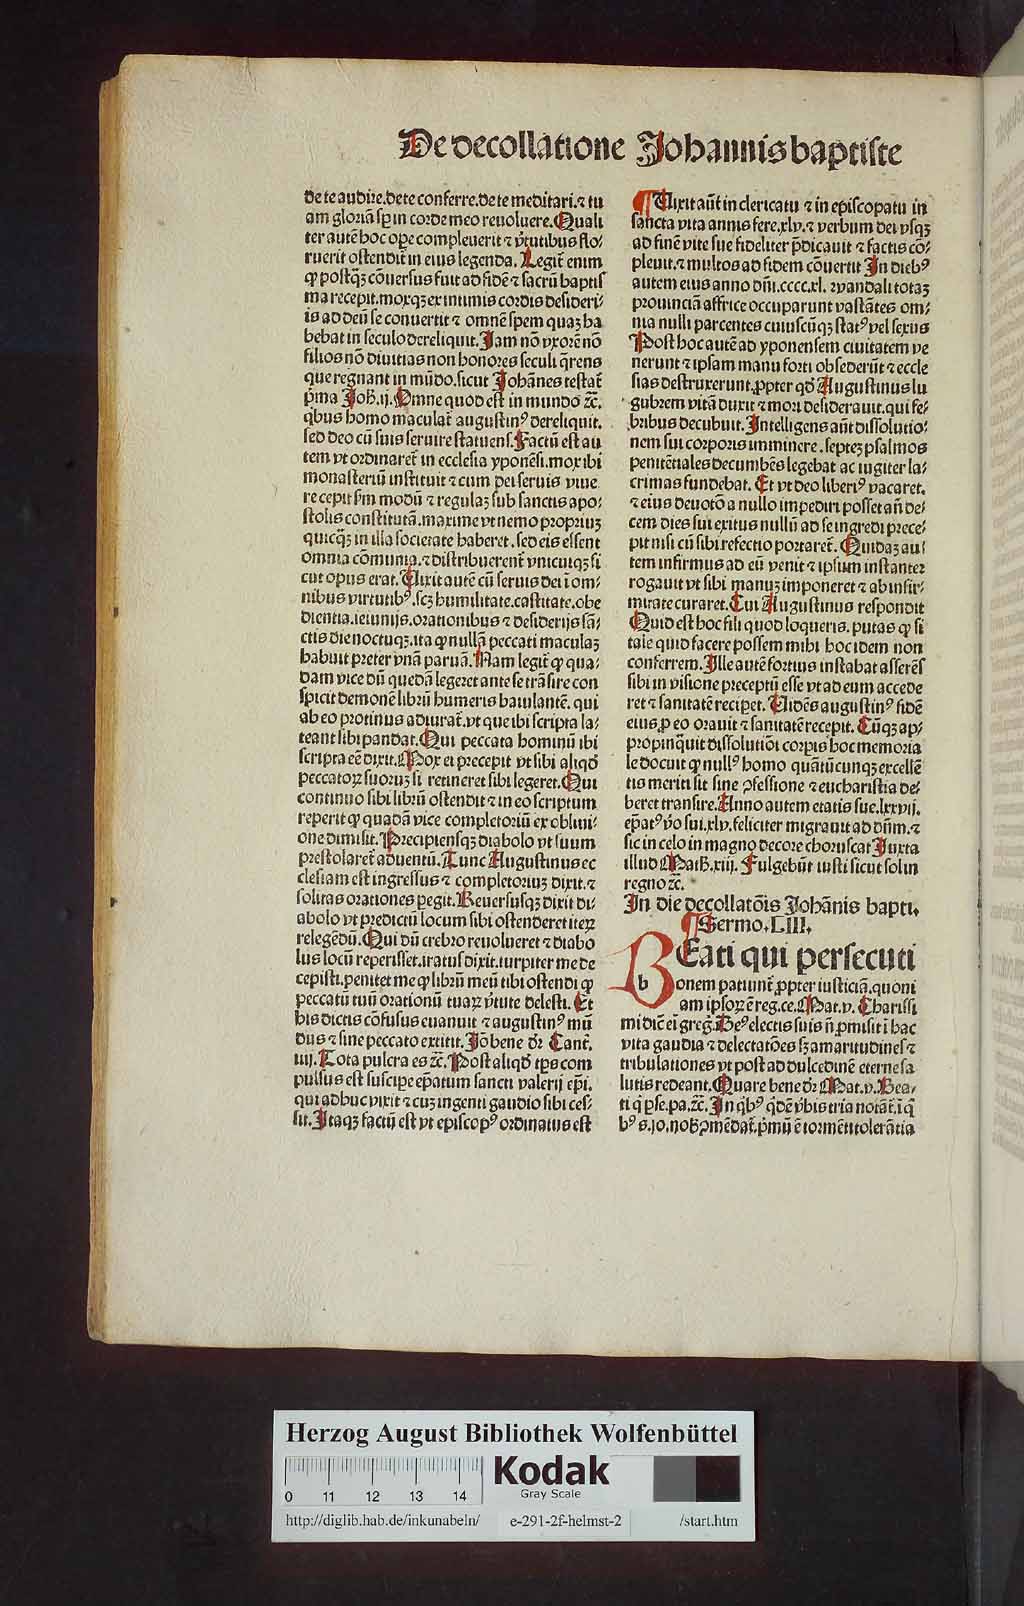 De decollatione Johannis baptiste
de te audire.de te conferre.de te meditari.⁊ tu
am gloriā sꝑ in corde meo reuoluere. Quali
ter autē hoc oꝑe compleuerit ⁊ v̓tutibus flo⸗
ruerit ostendit̄ in eius legenda. Legit̄ enim
ꝙ postqꝫ cōuersus fuit ad fidē ⁊ sacrū baptis
ma recepit.moxqꝫ ex intimis cordis desideri⸗
is ad deū se conuertit ⁊ omnē spem quaꝫ ha
bebat in seculo dereliquit. Jam nō vxorē nō
filios nō diuitias non honores seculi q̄rens
que regnant in mūdo.sicut Johānes testat̄
p̄ma Joh̄.ij. Omne quod est in mundo ⁊c̄.
qbus homo maculat̄ augustinꝰ dereliquit.
sed deo cū suis seruire statuens. Factū est au
tem vt ordinaret̄ in ecclesia yponēsi.mox ibi
monasteriū instituit ⁊ cum dei seruis viue
re cepit ẜm modū ⁊ regulaꝫ sub sanctis apo⸗
stolis constitutā.maxime vt nemo propriuꝫ
quicqꝫ in illa societate haberet.sed eis essent
omnia cōmunia.⁊ distribuerent̄ vnicuiqꝫ si
cut opus erat. Vixit autē cū seruis dei ī om⸗
nibus virtutibꝰ.scꝫ humilitate.castitate.obe
dientia.ieiunijs.orationibus ⁊ desiderijs sā⸗
ctis die noctuqꝫ.ita ꝙ nullā peccati maculaꝫ
habuit preter vnā paruā. Nam legit̄ ꝙ qua⸗
dam vice dū quedā legeret ante se trāsire con
spicit demonē librū humeris baiulantē.qui
ab eo protinus adiurat̄.vt que ibi scripta la⸗
teant sibi pandat. Qui peccata hominū ibi
scripta eē dixit. Mox ei precepit vt sibi aliqd̄
peccatoꝝ suoruꝫ si retineret sibi legeret. Qui
continuo sibi librū ostendit ⁊ in eo scriptum
reperit ꝙ quadā vice completoriū ex obliui⸗
one dimisit. Precipiensqꝫ diabolo vt suum
prestolaret̄ aduentū. Tunc Augustinus ec
clesiam est ingressus ⁊ completoriuꝫ dixit.⁊
solitas orationes ꝑegit. Reuersusqꝫ dixit di⸗
abolo vt predictū locum sibi ostenderet iteꝝ
relegēdū. Qui dū crebrio reuolueret ⁊ diabo
lus locū reperisset.iratus dixit.turpiter me de
cepisti.penitet me ꝙ librū meū tibi ostendi ꝙ
peccatū tuū orationū tuaꝝ v̓tute delesti. Et
his dictis cōfusus euanuit ⁊ augustinꝰ mū
dus ⁊ sine peccato extitit. Jō bene dr̄ Cant̄.
iiij. Tota pulcra es ⁊c̄. Post aliqd̄ tp̄s com
pulsus est suscipe ep̄atum sancti valerij ep̄i.
qui adhuc vixit ⁊ cuꝫ ingenti gaudio sibi ces⸗
sit. Itaqꝫ factū est vt episcopꝰ ordinatus est
¶ Vixit aūt in clericatu ⁊ in episcopatu in
sancta vita annis fere.xlv.⁊ verbum dei vsqꝫ
ad finē vite sue fideliter p̄dicauit ⁊ factis cō⸗
pleuit.⁊ multos ad fidem cōuertit In diebꝰ
autem eius anno dn̄i.cccc.xl. wandali totaꝫ
prouinciā affrice occuparunt vastātes om⸗
nia nulli parcentes cuiuscūqꝫ statꝰ vel sexus
Post hoc autē ad yponensem ciuitatem ve
nerunt ⁊ ipsam manu forti obsederūt ⁊ eccle
sias destruxerunt.ꝓpter qd̄ Augustinus lu
gubrem vitā duxit ⁊ mori desiderauit.qui fe⸗
bribus decubuit. Intelligens aūt dissolutio⸗
nem sui corporis imminere.septeꝫ psalmos
penitētiales decumbēs legebat ac iugiter la⸗
crimas fundebat. Et vt deo liberiꝰ vacaret.
⁊ eius deuotō a nullo impediri posset an̄ de⸗
cem dies sui exitus nullū ad se ingredi prece⸗
pit nisi cū sibi refectio portaret̄. Quidaꝫ au⸗
tem infirmus ad eū venit ⁊ ipsum instanter
rogauit vt sibi manuꝫ imponeret ⁊ ab infir⸗
mitate curaret. Cui Augustinus respondit
Quid est hoc fili quod loqueris.putas ꝙ si
tale quid facere possem mihi hoc idem non
conferrem. Ille autē fortius instabat asserēs
sibi in visione preceptū esse vt ad eum accede
ret ⁊ sanitatē reciꝑet. Vidēs augustinꝰ fidē
eius ꝓ eo orauit ⁊ sanitatē recepit. Cūqꝫ ap⸗
propinq̄uit dissolutiōi corpis hoc memoria
le docuit ꝙ nullꝰ homo quātūcunqꝫ excellē
tis meriti sit sine ꝯfessione ⁊ eucharistia de⸗
beret transire. Anno autem etatis sue.lxxvij.
ep̄atꝰ v̓o sui.xlv.feliciter migrauit ad dn̄m.⁊
sic in celo in magno decore choruscat Juxta
illud Math̄.xiij. Fulgebūt iusti sicut sol in
regno ⁊c̄.
In die decollatōis Johānis bapti.
¶ Sermo.LIII.
BEati qui persecuti
b
onem patiunt̄ ꝓpter iusticiā.quoni
am ipsoꝝ ē reg.ce. Mat.v. Charissi
mi dic̄ ei greg̓. Deꝰ electis suis n̄ ꝓmisit ī hac
vita gaudia ⁊ delectatōes sꝫ amaritudines ⁊
tribulationes vt post ad dulcedinē eterne sa
lutis redeant. Quare bene dr̄ Mat.v. Bea⸗
ti q̇ ꝑse.pa.⁊c̄. In qbꝰ q̇dē v̓bis tria notāt̄.ī q̇
bꝰ s.io.noƀ ꝯmēdat̄.p̄mū ē tormēti tolerātia
Herzog August Bibliothek Wolfenbüttel
0 11 12 13 14
Kodak
Gray Scale
http://diglib.hab.de/inkunabeln/ e-291-2f-helmst-2 /start.htm